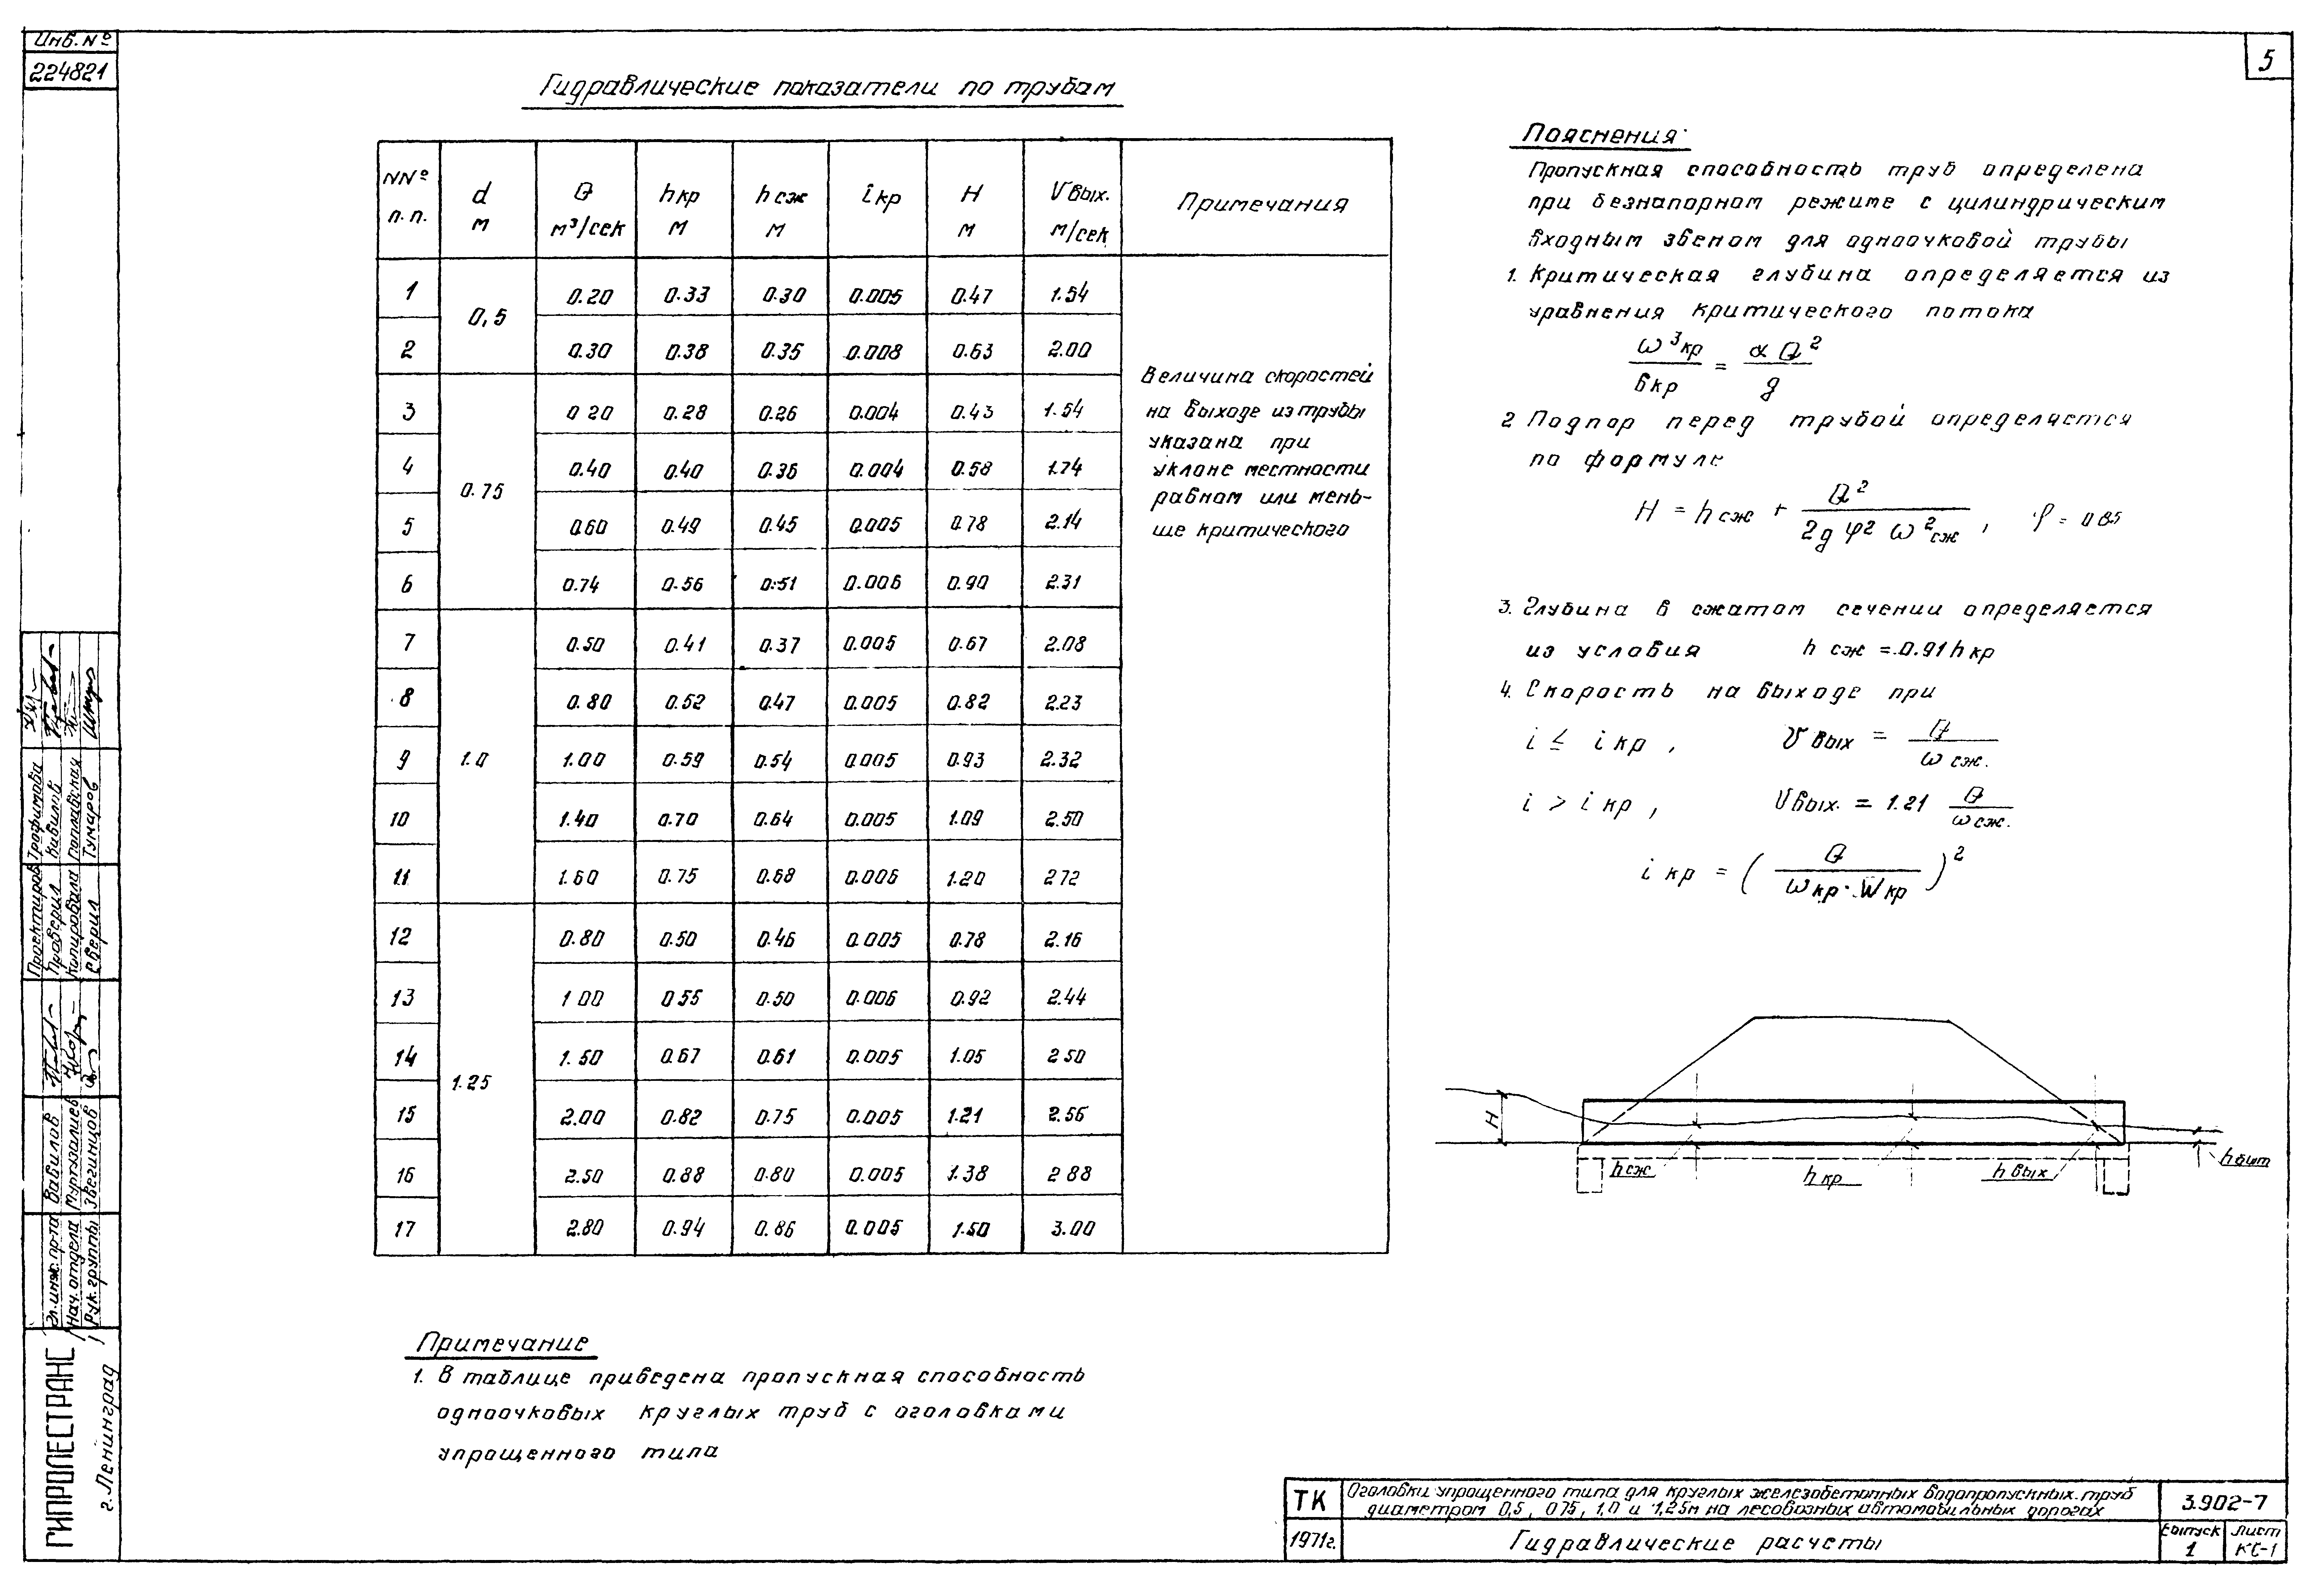 Инв. №
224821
5
Гидравлические показатели по трубам
NN№ п.п. d м Q м³/сек hкр м hсж м iкр H м Vвых. м/сек Примечания
1 0,5 0.20 0.33 0.30 0.005 0.47 1.54
2 0.30 0.38 0.35 0.008 0.63 2.00
3 0.75 0 20 0.28 0.26 0.004 0.43 1.54
4 0.40 0.40 0.36 0.004 0.58 1.74
5 0.60 0.49 0.45 0.005 0.78 2.14
6 0.74 0.56 0.51 0.006 0.90 2.31
7 1.0 0.50 0.41 0.37 0.005 0.67 2.08
8 0.80 0.52 0.47 0.005 0.82 2.23
9 1.00 0.59 0.54 0.005 0.93 2.32
10 1.40 0.70 0.64 0.005 1.09 2.50
11 1.60 0.75 0.68 0.006 1.20 2 72
12 1.25 0.80 0.50 0.46 0.005 0.78 2.16
13 1 00 0 55 0.50 0.006 0.92 2.44
14 1.50 0.67 0.61 0.005 1.05 2 50
15 2.00 0.82 0.75 0.005 1.21 2.56
16 2.50 0.88 0.80 0.005 1.38 2 88
17 2.80 0.94 0.86 0.005 1.50 3.00
Величина скоростей
на выходе из трубы
указана при
уклоне местности
равном или мень-
ше критического
Примечание
1. В таблице приведена пропускная способность
одноочковых круглых труб с оголовками
упрощенного типа
Пояснения:
Пропускная способность труб определена
при безнапорном режиме с цилиндрическим
входным звеном для одноочковой трубы
1. Критическая глубина определяется из
уравнения критического потока
ω³кр / bкр = α Q² / g
2 Подпор перед трубой определяется
по формуле
H = hсж + Q² / 2g φ² ω²сж , φ = 0 85
3. Глубина в сжатом сечении определяется
из условия h сж = 0.91 h кр
4. Скорость на выходе при
i ≤ i кр , V вых = Q / ω сж.
i > i кр , Vвых. = 1.21 Q / ω сж.
i кр = ( Q / ωкр · Wкр )²
H
hсж
h кр
h вых
h быт
Проектиров Трофимова
Проверил Вавилов
Копировала Поплавская
Сверил Тумаров
Гл.инж. пр-та Вавилов
Нач. отдела Муртузалиев
Рук. группы Звегинцов
ГИПРОЛЕСТРАНС
г. Ленинград
ТК
1971г.
Оголовки упрощенного типа для круглых железобетонных водопропускных труб
диаметром 0,5, 075, 1,0 и 1,25м на лесовозных автомобильных дорогах
Гидравлические расчеты
3.902-7
Выпуск 1
Лист КС-1